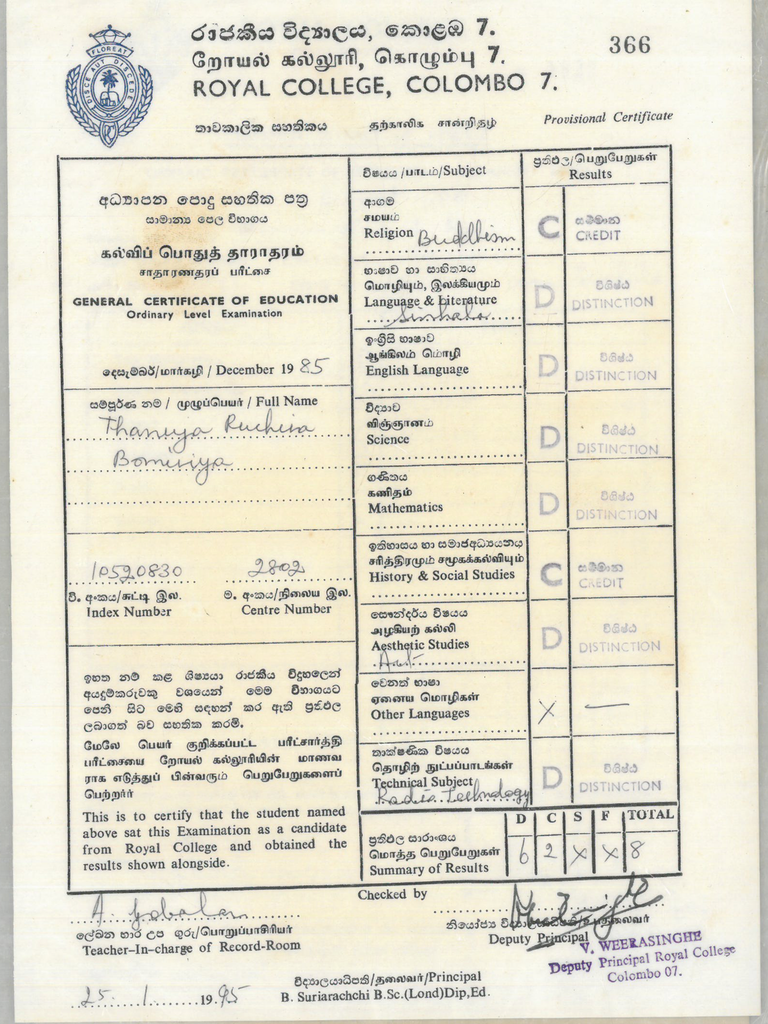 රාජකීය විද්‍යාලය, කොළඹ 7.
றோயல் கல்லூரி, கொழும்பு 7.
ROYAL COLLEGE, COLOMBO 7.
366
FLOREAT
DISCE AUT DISCEDE
තාවකාලික සහතිකය தற்காலிக சான்றிதழ் Provisional Certificate
අධ්‍යාපන පොදු සහතික පත්‍ර
සාමාන්‍ය පෙල විභාගය
கல்விப் பொதுத் தாராதரம்
சாதாரணதரப் பரீட்சை
GENERAL CERTIFICATE OF EDUCATION
Ordinary Level Examination
දෙසැම්බර්/மார்கழி / December 1985
සම්පූර්ණ නම / முழுப்பெயர் / Full Name
Ruchira
10520830 2802
වි. අංකය/சுட்டி இல. ම. අංකය/நிலைய இல.
Index Number Centre Number
ඉහත නම් කළ ශිෂ්‍යයා රාජකීය විදුහලෙන්
අයදුම්කරුවකු වශයෙන් මෙම විභාගයට
පෙනී සිට මෙහි සඳහන් කර ඇති ප්‍රතිඵල
ලබාගත් බව සහතික කරමි.
மேலே பெயர் குறிக்கப்பட்ட பரீட்சார்த்தி
பரீட்சையை றோயல் கல்லூரியின் மாணவ
ராக எடுத்துப் பின்வரும் பெறுபேறுகளைப்
பெற்றார்
This is to certify that the student named
above sat this Examination as a candidate
from Royal College and obtained the
results shown alongside.
විෂයය/பாடம்/Subject
ප්‍රතිඵල/பெறுபேறுகள்
Results
ආගම
சமயம்
Religion Buddhism
C සම්මාන
CREDIT
භාෂාව හා සාහිත්‍යය
மொழியும், இலக்கியமும்
Language & Literature
Sinhala
D විශිෂ්ඨ
DISTINCTION
ඉංග්‍රීසි භාෂාව
ஆங்கிலம் மொழி
English Language
D විශිෂ්ඨ
DISTINCTION
විද්‍යාව
விஞ்ஞானம்
Science
D විශිෂ්ඨ
DISTINCTION
ගණිතය
கணிதம்
Mathematics
D විශිෂ්ඨ
DISTINCTION
ඉතිහාසය හා සමාජඅධ්‍යයනය
சரித்திரமும் சமூகக்கல்வியும்
History & Social Studies
C සම්මාන
CREDIT
සෞන්දර්ය විෂයය
அழகியற் கல்வி
Aesthetic Studies
Art
D විශිෂ්ඨ
DISTINCTION
වෙනත් භාෂා
ஏனைய மொழிகள்
Other Languages
X —
තාක්ෂණික විෂයය
தொழிற் நுட்பப்பாடங்கள்
Technical Subject
Radio Technology
D විශිෂ්ඨ
DISTINCTION
ප්‍රතිඵල සාරාංශය
மொத்த பெறுபேறுகள்
Summary of Results
D C S F TOTAL
6 2 X X 8
Checked by
ලේඛන භාර උප ගුරු/பொறுப்பாசிரியர்
Teacher-In-charge of Record-Room
නියෝජ්‍ය විද්‍යාලයාධිපති/உபதலைவர்
Deputy Principal
V. WEERASINGHE
Deputy Principal Royal College
Colombo 07.
25. 1. 1995
විද්‍යාලයාධිපති/தலைவர்/Principal
B. Suriarachchi B.Sc.(Lond)Dip,Ed.